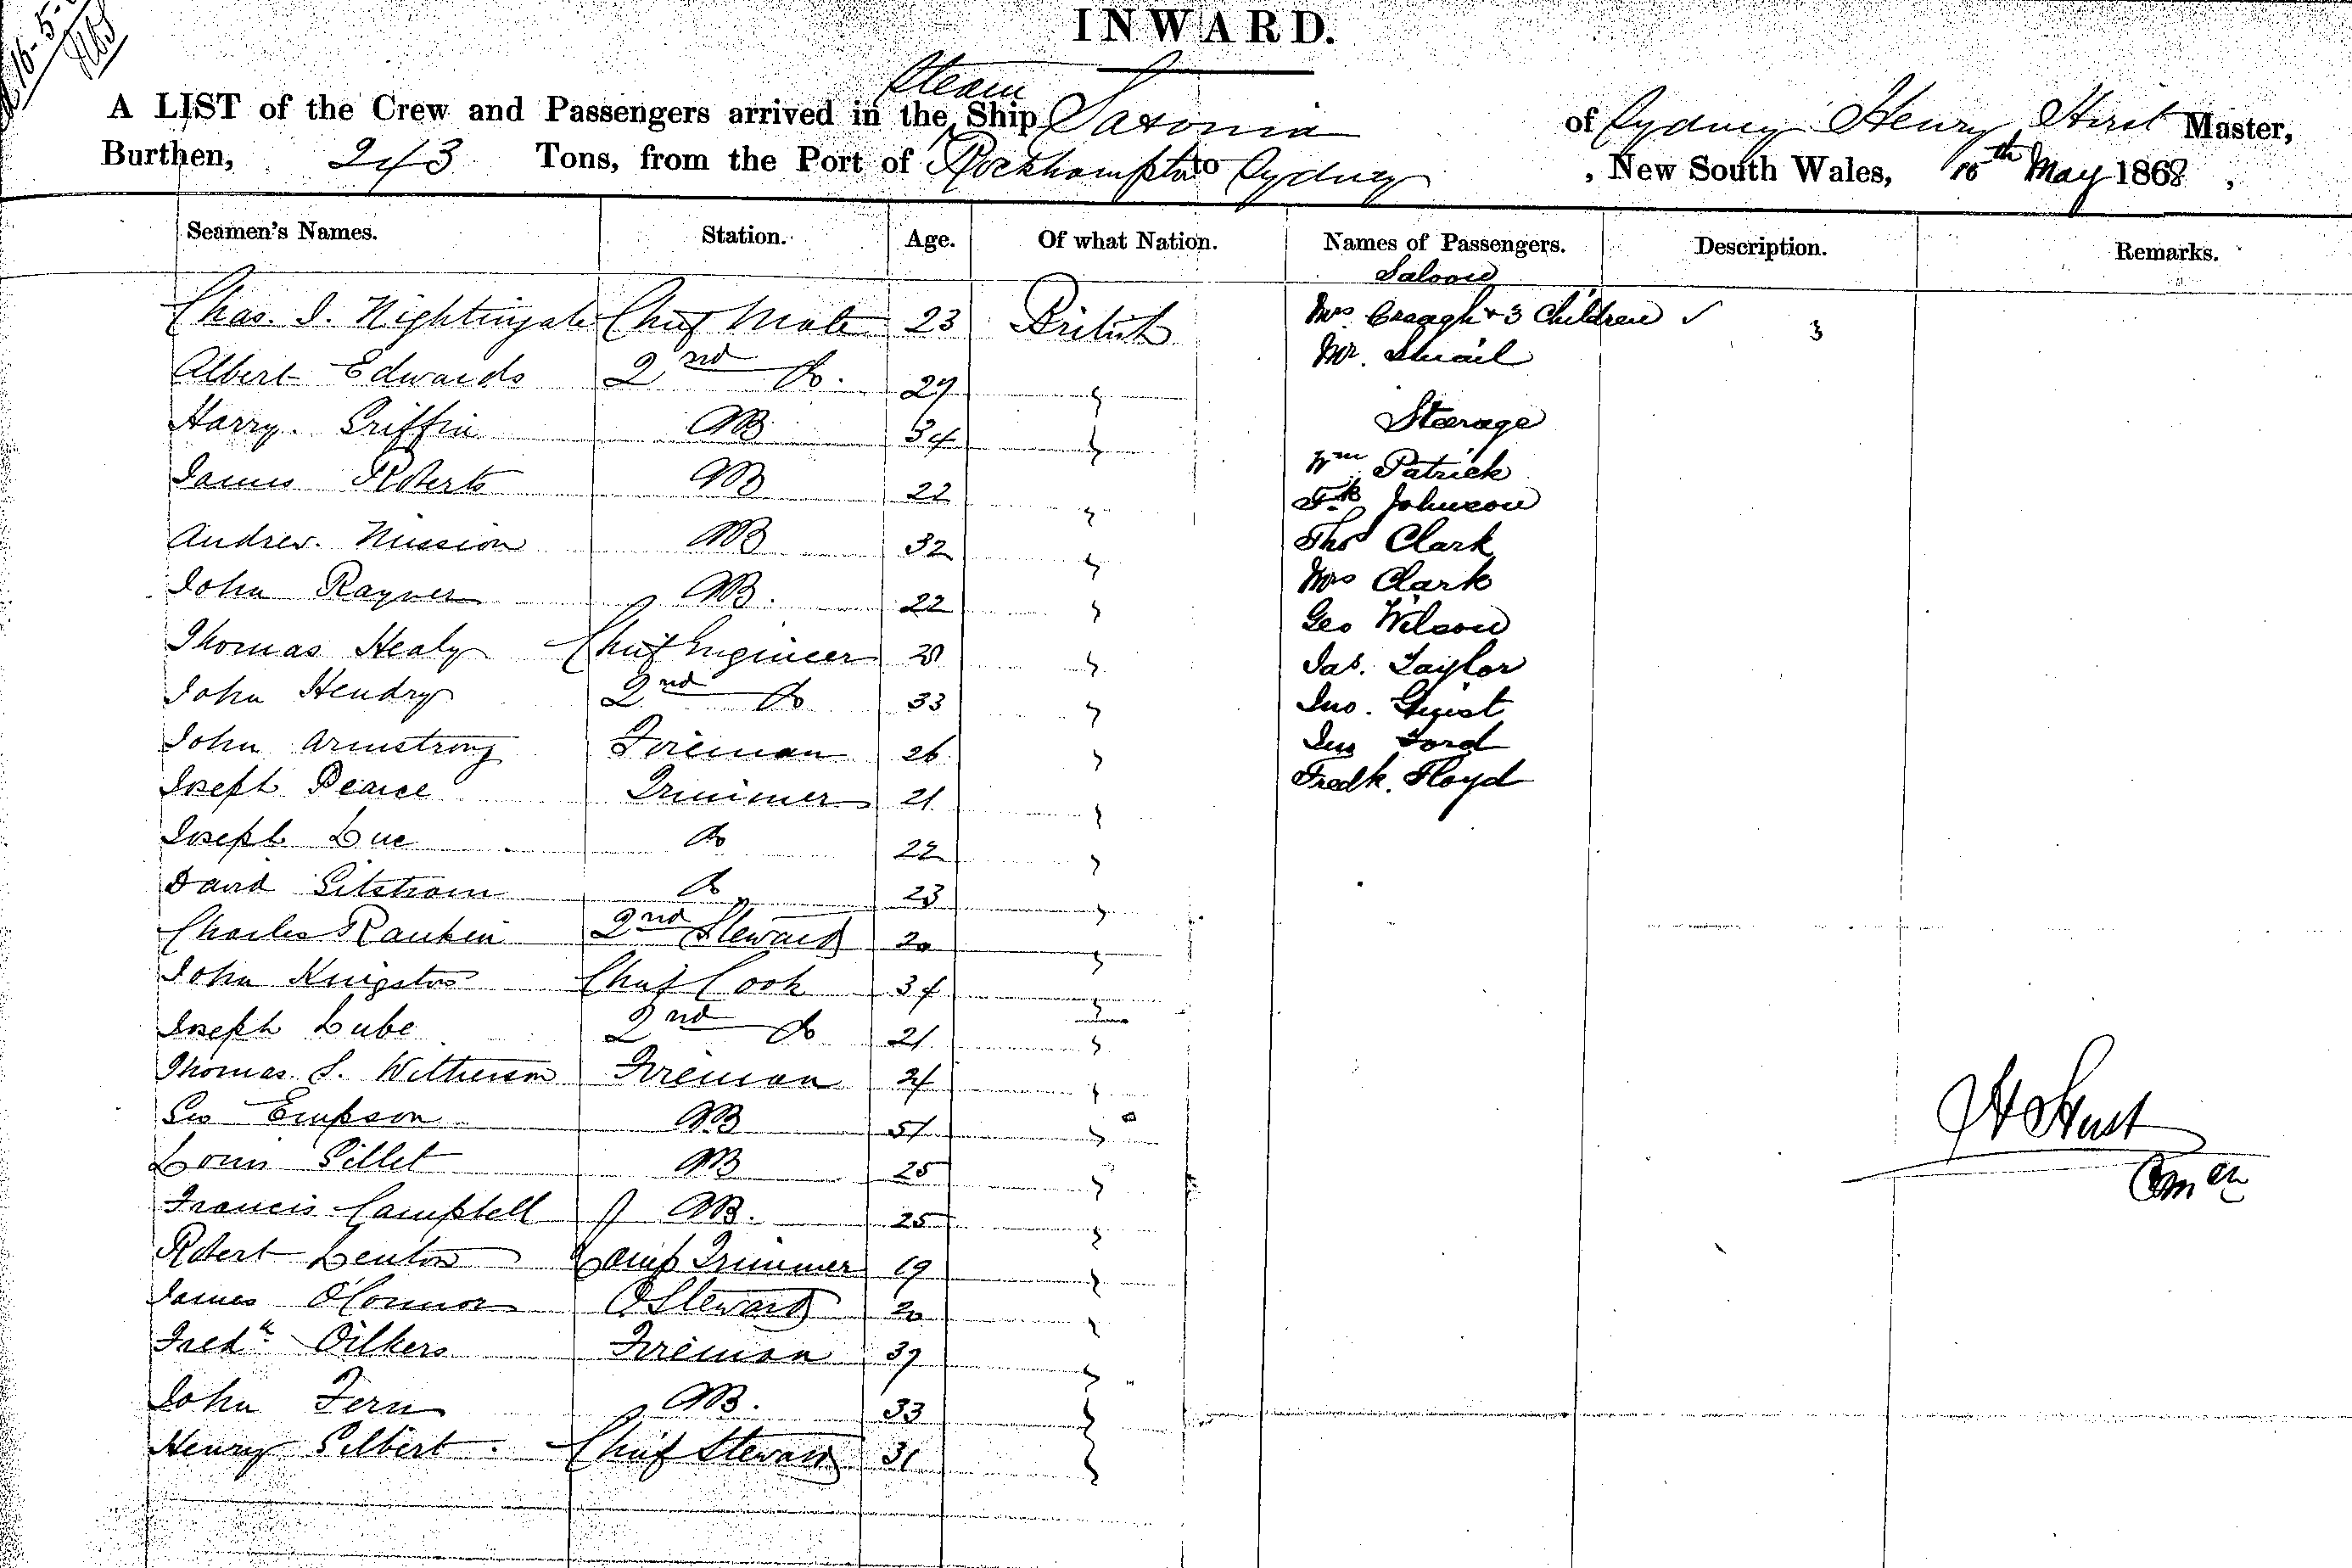 INWARD.
A LIST of the Crew and Passengers arrived in the Steam Ship Saxonia of Sydney Henry Hirst Master,
Burthen, 243 Tons, from the Port of Rockhampton to Sydney , New South Wales, 16th May 1868,
Seamen's Names. Station. Age. Of what Nation. Names of Passengers. Description. Remarks.
Saloon
Chas. I. Nightingale Chief Mate 23 British Mrs. Creagh + 3 Children ✓ 3
Mr. Smail
Albert Edwards 2nd do. 27 "
Harry. Griffin AB 34 " Steerage
James Roberts AB 22 " Wm Patrick
Fk Johnson
Andrew. Nission AB 32 " Thos Clark
John Rayner AB. 22 " Mrs Clark
Geo Wilson
Thomas Healy Chief Engineer 28 " Jas. Taylor
John Hendry 2nd do 33 " Jno. Guist
John Armstrong Fireman 26 " Jno Ford
Joseph Pearce Trimmer 21 " Fredk. Floyd
Joseph Luc do 22 "
David Gilstrom do 23 "
Charles Rankin 2nd Steward 20 "
John Kingston Chief Cook 34 "
Joseph Lube 2nd do 21 "
Thomas S. Witherson Fireman 24 "
Geo Empson AB 51 "
Louis Gillet AB 25 "
Francis Campbell AB. 25 "
Robert Lenton Lamp Trimmer 19 "
James O'Connor Steward 20 "
Fredk Oilkers Fireman 37 "
John Fern AB. 33 "
Henry Gilbert. Chief Steward 31 "
H Hirst